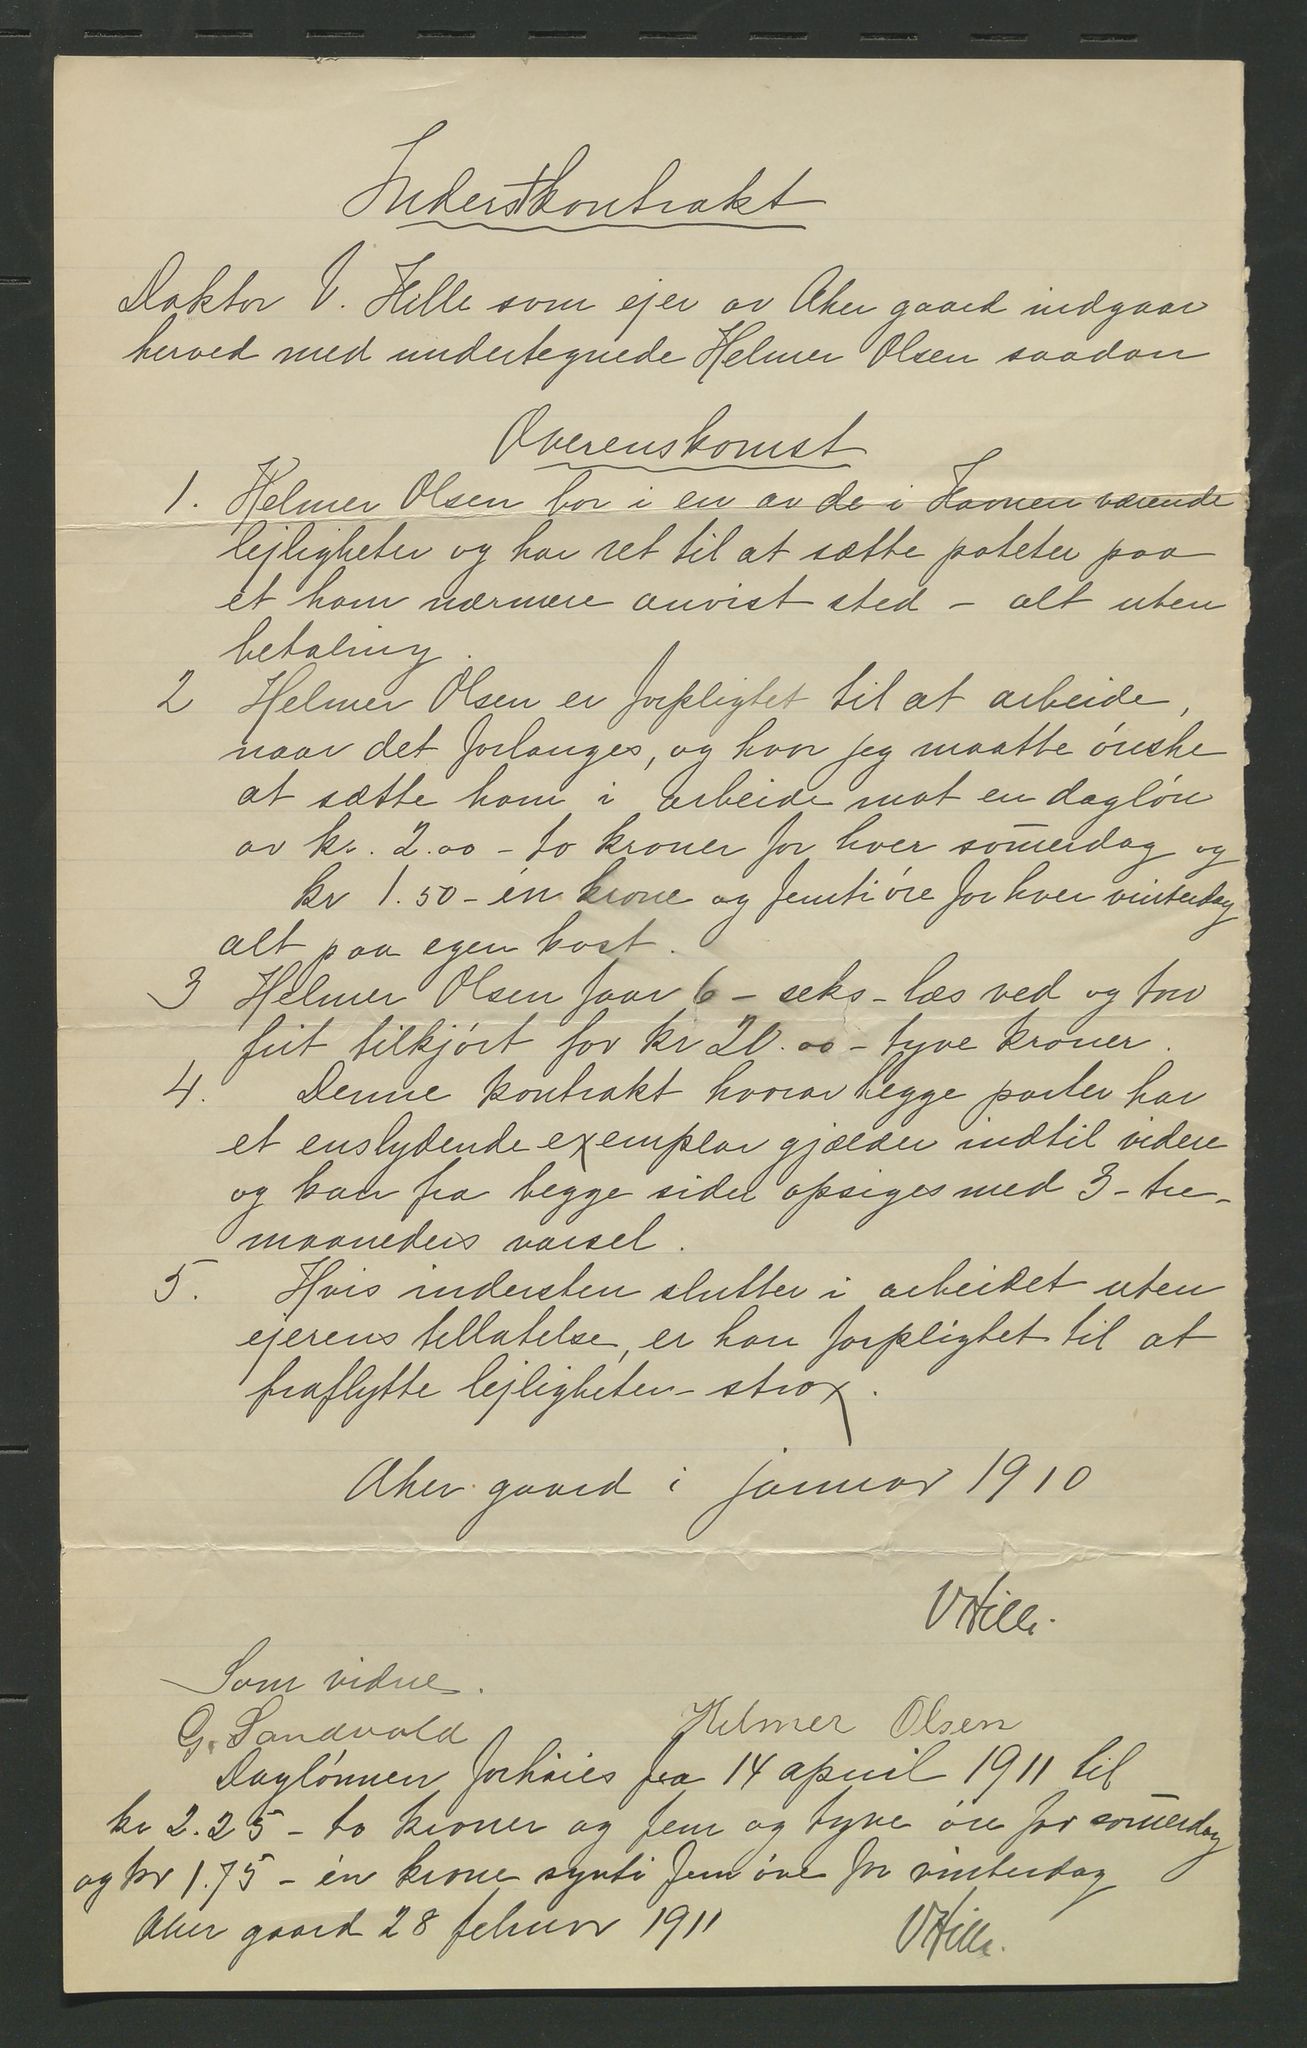 Inderstkontrakt
Doktor V. Hille som ejer av Aker gaard indgaar
herved med undertegnede Helmer Olsen saadan
Overenskomst
1. Helmer Olsen bor i en av de i Havnen værende
lejligheter og har ret til at sætte poteter paa
et ham nærmere anvist sted - alt uten
betaling.
2 Helmer Olsen er forpligtet til at arbeide,
naar det forlanges, og hvor jeg maatte ønske
at sætte ham i arbeide mot en dagløn
av kr. 2.00 - to kroner for hver som̄erdag og
kr 1.50 - én krone og femti øre for hver vinterdag
alt paa egen kost.
3 Helmer Olsen faar 6 - seks - læs ved og torv
frit tilkjørt for kr 20.00 - tyve kroner.
4. Denne kontrakt hvorav begge parter har
et enslydende exemplar gjælder indtil videre
og kan fra begge sider opsiges med 3 - tre -
maaneders varsel.
5. Hvis indersten slutter i arbeidet uten
ejerens tillatelse, er han forpligtet til at
fraflytte lejligheten strax.
Aker gaard i januar 1910
VHille.
Som vidne.
G. Sandvold Helmer Olsen
Daglønnen forhøies fra 14 april 1911 til
kr 2.25 - to kroner og fem og tyve øre for som̄erdag
og kr 1.75 - én krone sytti fem øre for vinterdag
Aker gaard 28 februar 1911 VHille.